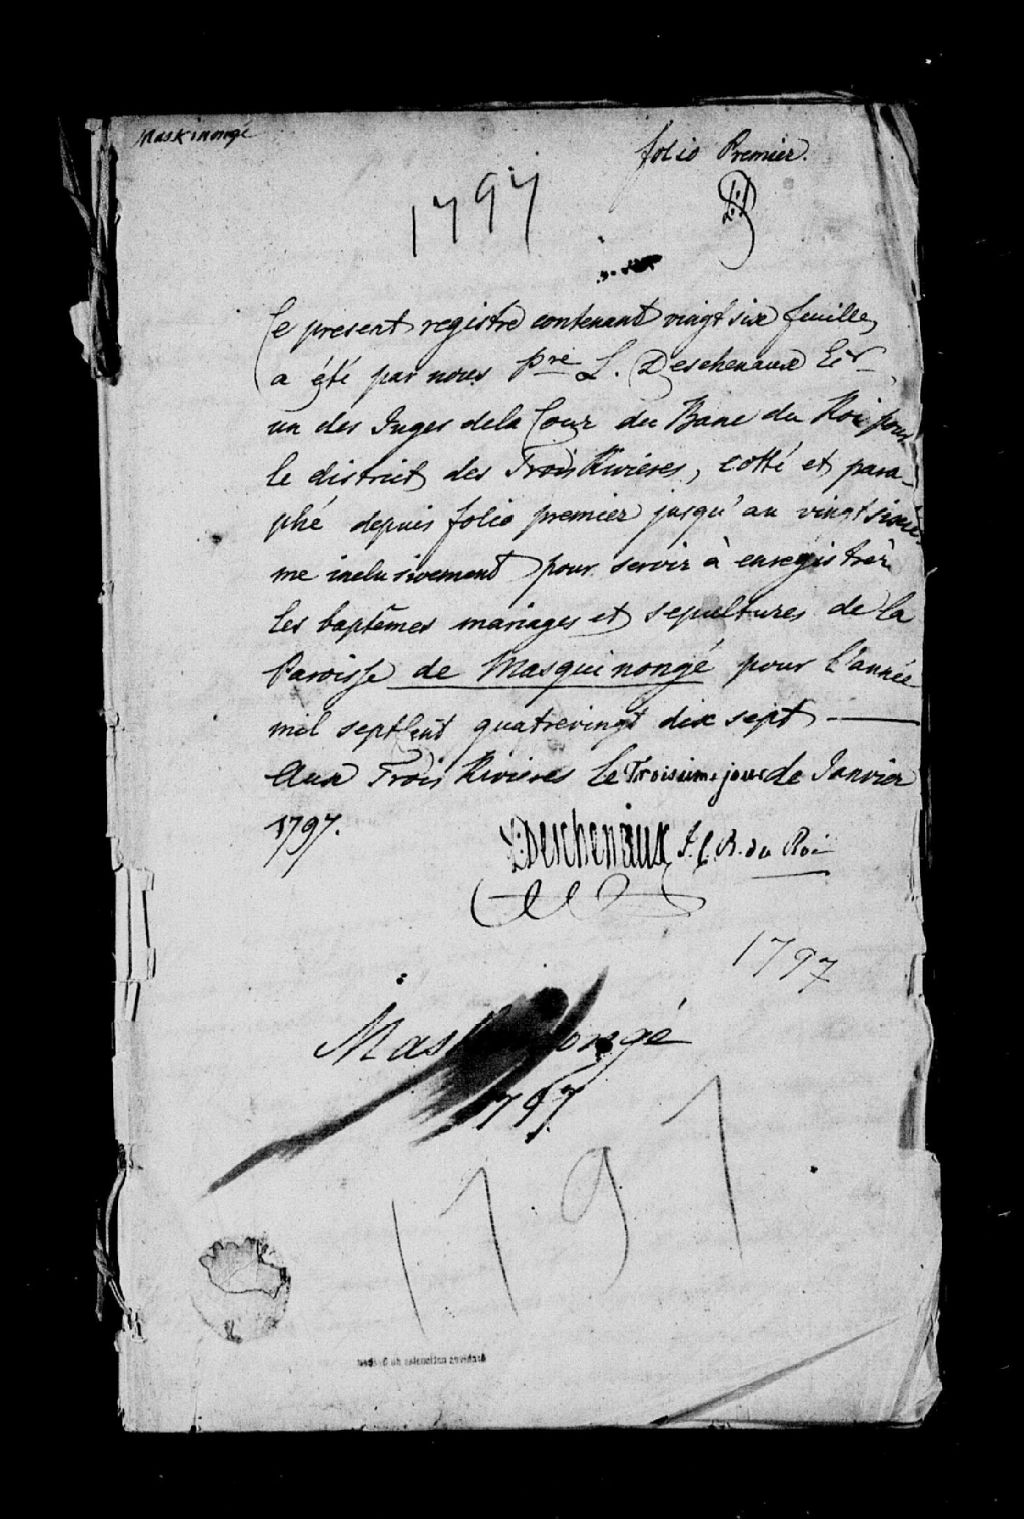 Maskinongé
folio Premier.
1797
Ce present registre contenant vingt six feuilles
a été par nous Pre L. Deschenaux Ecr
un des Juges dela Cour du Banc du Roi pour
le district des Trois Rivieres, cotté et para-
phé depuis folio premier jusqu'au vingt sixiè-
me inclusivement pour servir à enregistrer
les baptêmes mariages et sepultures de la
Paroisse de Masquinongé pour l'année
mil sept Cent quatrevingt dix sept
Aux Trois Rivieres le Troisieme jour de Janvier
1797.
Deschenaux J. C. B. du Roi
1797
Mas ongé
1797
1797
Archives nationales du Québec